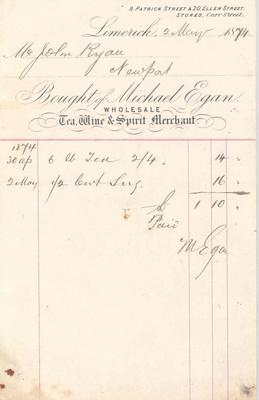 9, PATRICK STREET & 20, ELLEN STREET.
STORES, CARR STREET.
Limerick, 2 May 1874
Mr John Ryan
Newport
Bought of Michael Egan,
WHOLESALE
Tea, Wine & Spirit Merchant.
1874
30 Ap 6 lb Tea 2/4 14 "
2 May 1/2 Cwt Sug. 16 "
£ 1 10 "
Paid
M Egan